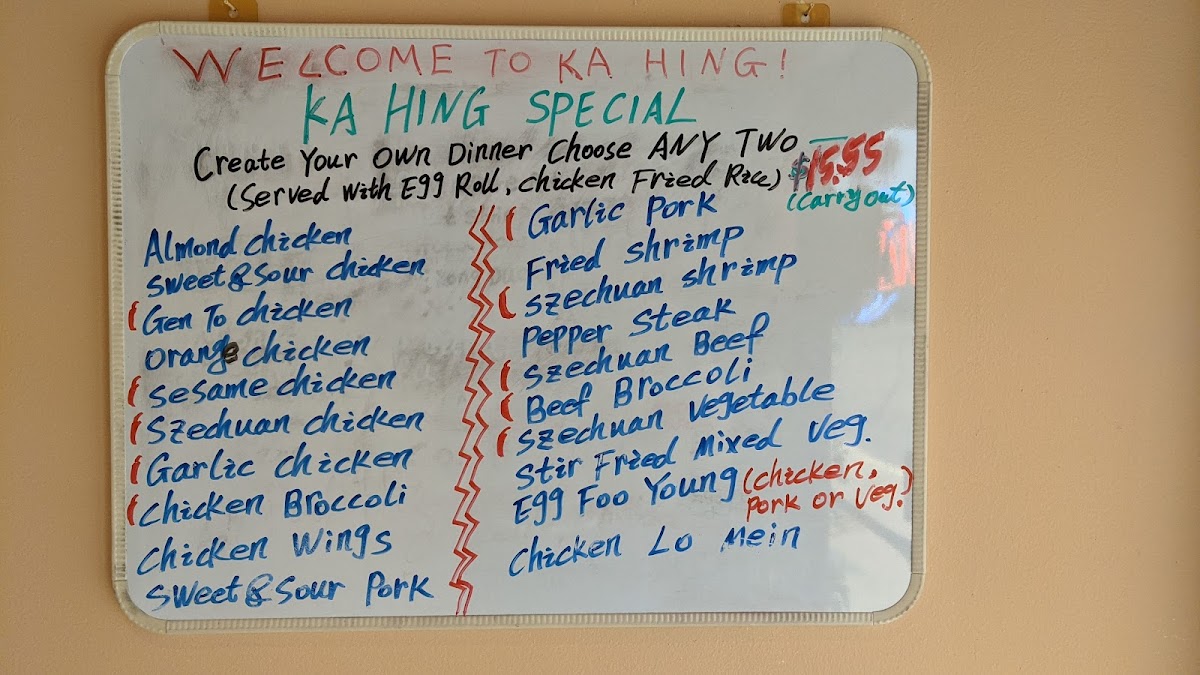 WELCOME TO KA HING!
KA HING SPECIAL
Create Your OWN Dinner Choose ANY TWO
(Served with Egg Roll, chicken Fried Rice) $15.55
(carry out)
Almond chicken
Sweet & Sour chicken
Gen To chicken
Orange chicken
Sesame chicken
Szechuan chicken
Garlic chicken
Chicken Broccoli
Chicken Wings
Sweet & Sour Pork
Garlic Pork
Fried Shrimp
Szechuan Shrimp
Pepper Steak
Szechuan Beef
Beef Broccoli
Szechuan Vegetable
Stir Fried Mixed Veg.
Egg Foo Young (chicken,
Pork or Veg.)
Chicken Lo Mein